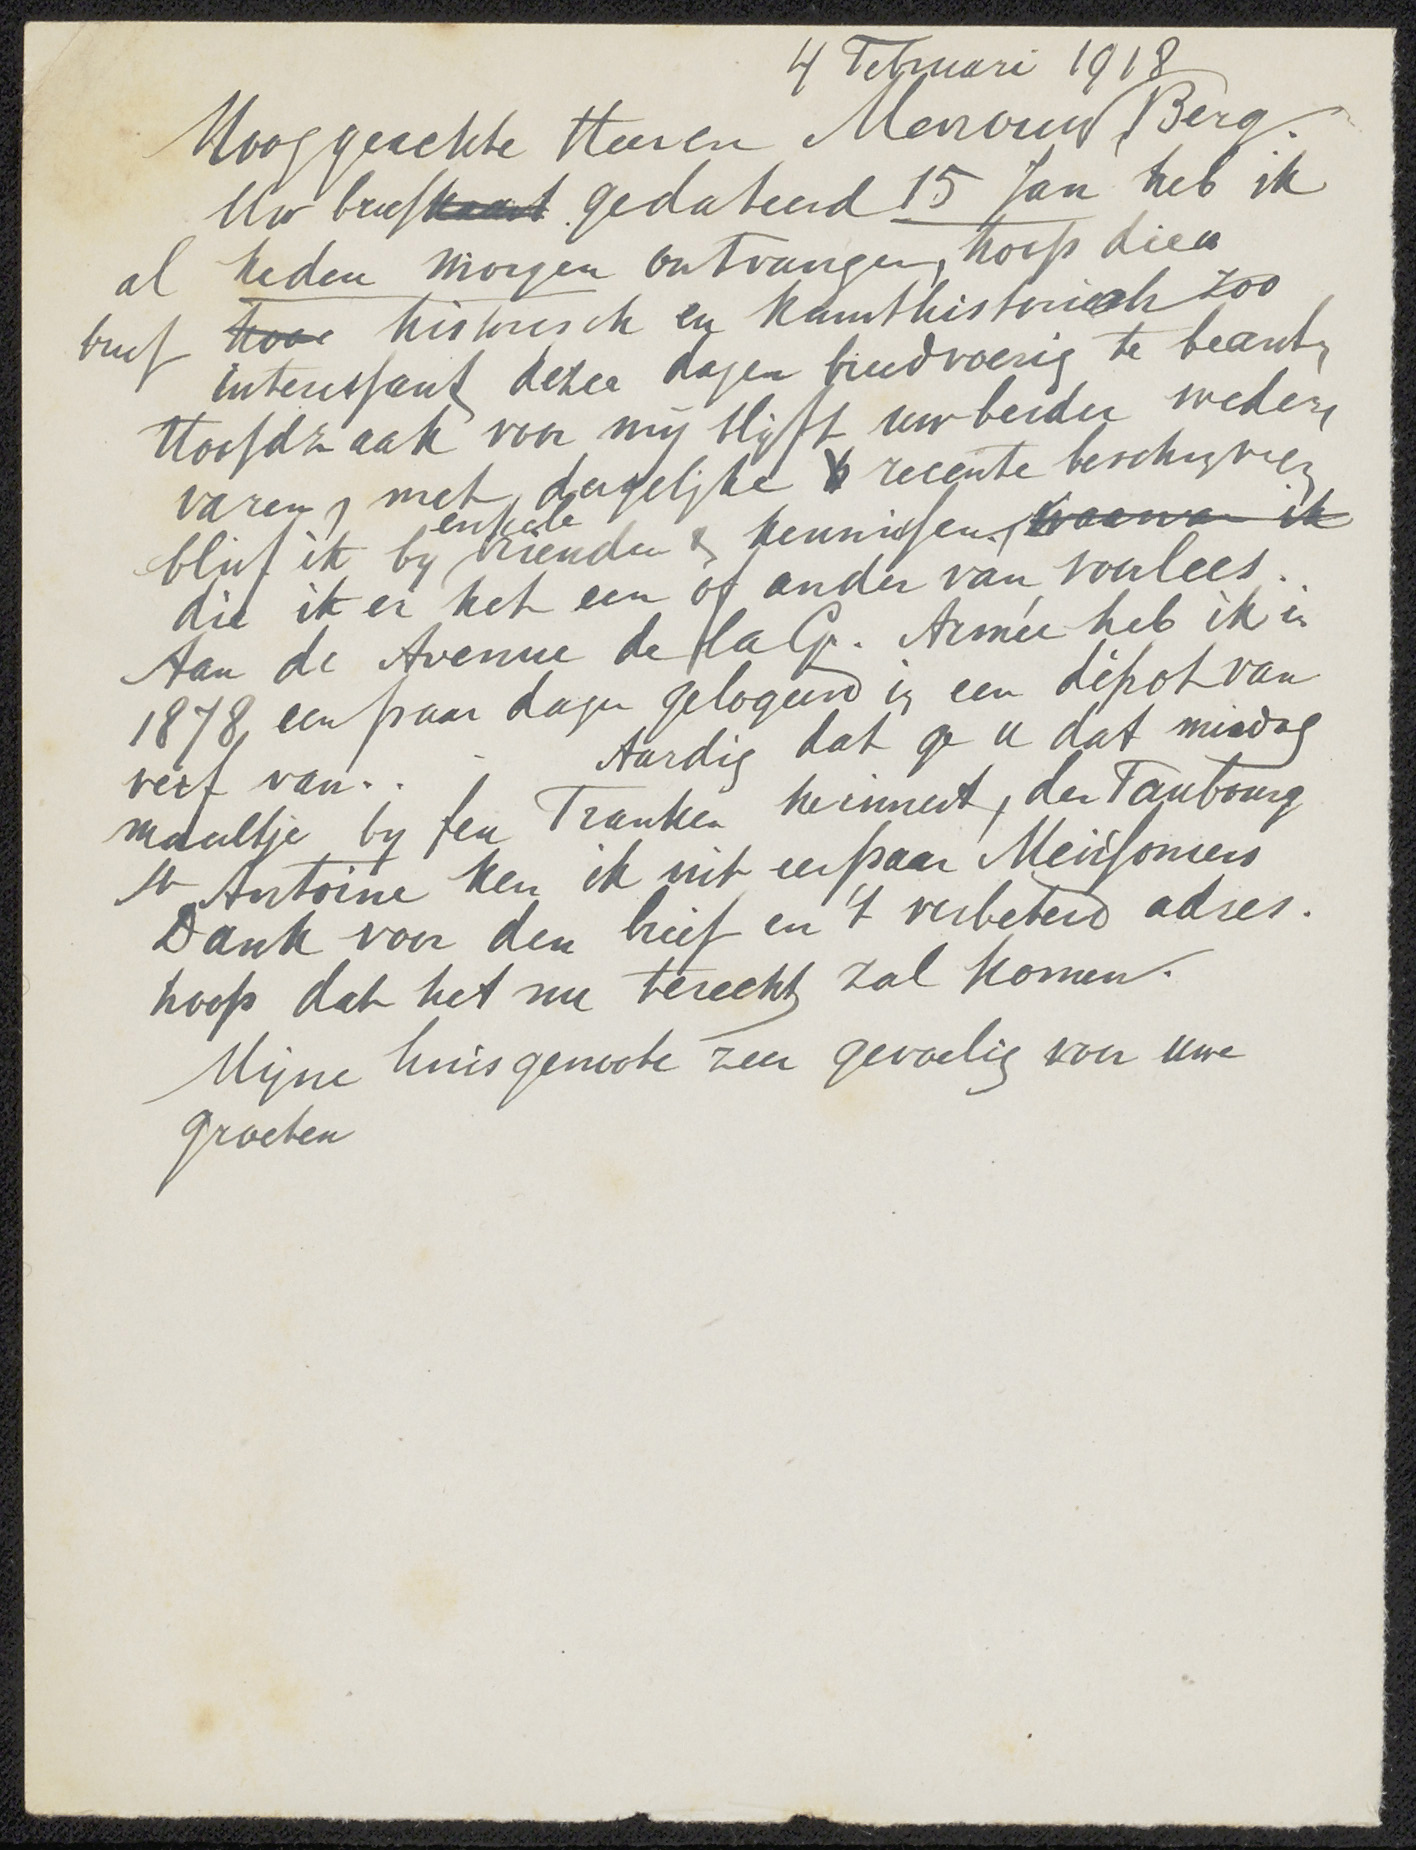 4 Februari 1918
Hooggeachte Heer en Mevrouw Berg.
Uw briefkaart gedateerd 15 Jan heb ik
al heden morgen ontvangen, hoop dien
brief hoe historisch en kunsthistorisch zoo
interessant dezer dagen breedvoerig te beantw
Hoofdzaak voor mij blijft uw beider weder
varen, met dergelijke recente beschrijving
blief ik bij enkele vrienden & kennissen, waarvan ik
die ik er het een of ander van voorlees.
Aan de Avenue de la Gr. Armée heb ik in
1878 een paar dagen gelogeerd in een dépot van
verf van.. Aardig dat ge u dat middag
maaltje by feu Franken herinnert, den Faubourg
St Antoine ken ik uit een paar Meissoniers
Dank voor den brief en 't verbeterd adres.
hoop dat het nu terecht zal komen.
Mijne huisgenoote zeer gevoelig voor uwe
groeten